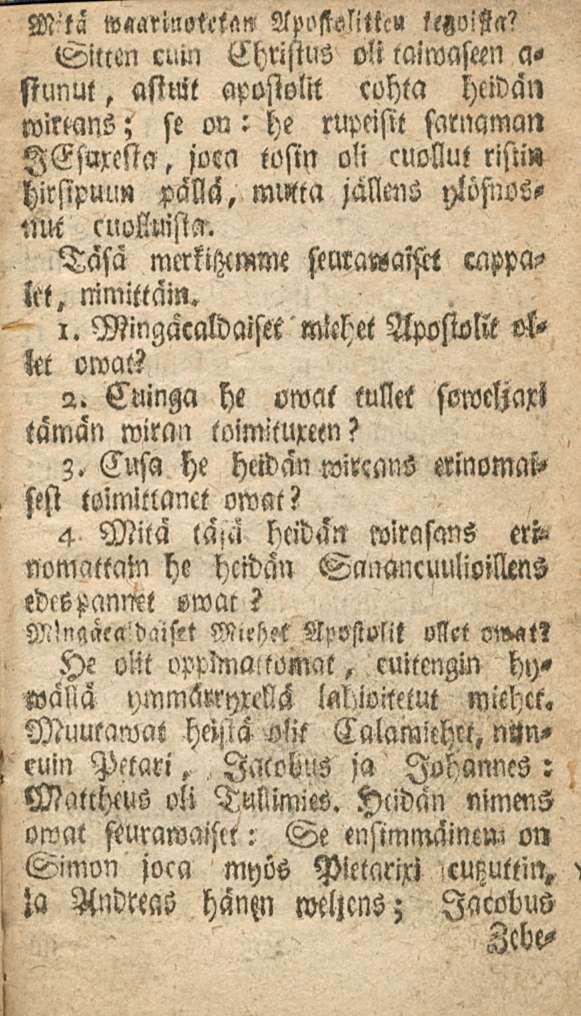 Mitä waarinotetan Apostolitten tegoista?
Sitten cuin Christus oli taiwaseen a⸗
stunut, astuit apostolit cohta heidän
wircans; se on: he rupeisit sarnaman
JEsuxesta, joca tosin oli cuollut ristin
hirsipuun pällä, mutta jällens ylösnos⸗
nut cuolluista.
Täsä merkitzemme seurawaiset cappa⸗
let, nimittäin.
1. Mingäcaldaiset miehet Apostolit ol⸗
let owat?
2. Cuinga he owat tullet soweljaxi
tämän wiran toimituxeen?
3. Cusa he heidän wircans erinomai⸗
sest toimittanet owat?
4 Mitä täsä heidän wirasans eri⸗
nomattain he heidän Sanancuulioillens
edespannet owat?
Mingäcaldaiset Miehet Apostolit ollet owat?
He olit oppimattomat, cuitengin hy⸗
wällä ymmärryxellä lahjoitetut miehet.
Muutawat heistä olit Calamiehet, niin⸗
cuin Petari, Jacobus ja Johannes:
Mattheus oli Tullimies. Heidän nimens
owat seurawaiset: Se ensimmäinen on
Simon joca myös Pietarixi cutzuttin,
ja Andreas hänen weljens; Jacobus
Zebe⸗